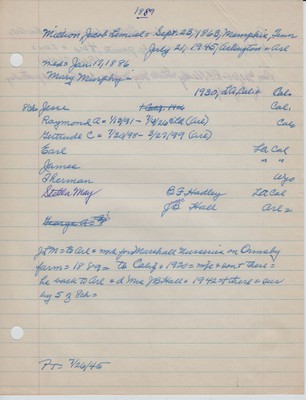 1889
Midson, Jacob Lemuel = Sept. 23, 1863, Memphis, Tenn
July 21, 1945, Arlington = Arl
md = Jan. 17, 1886
"Mary Murphy" =
1930, LA, Calif = Cal.
8ch Jesse Cal.
Raymond A = 1/13/91 - 7/4/26 (Arl) Cal.
Gertrude C = 7/20/98 - 2/27/99 (Arl)
Earl LA Cal
James " "
Therman Wyo
Stella May B F Hadley LA Cal
J B Hall Arl =
George A =
J & M = to Arl & wkd for Marshall Nurseries on Ormsby
farm = 1889 = to Calif = 1920 = wife & went there =
he back to Arl & d Mrs JB Hall = 1942 & there = sur
by 5 of 8ch =
AT = 7/26/45